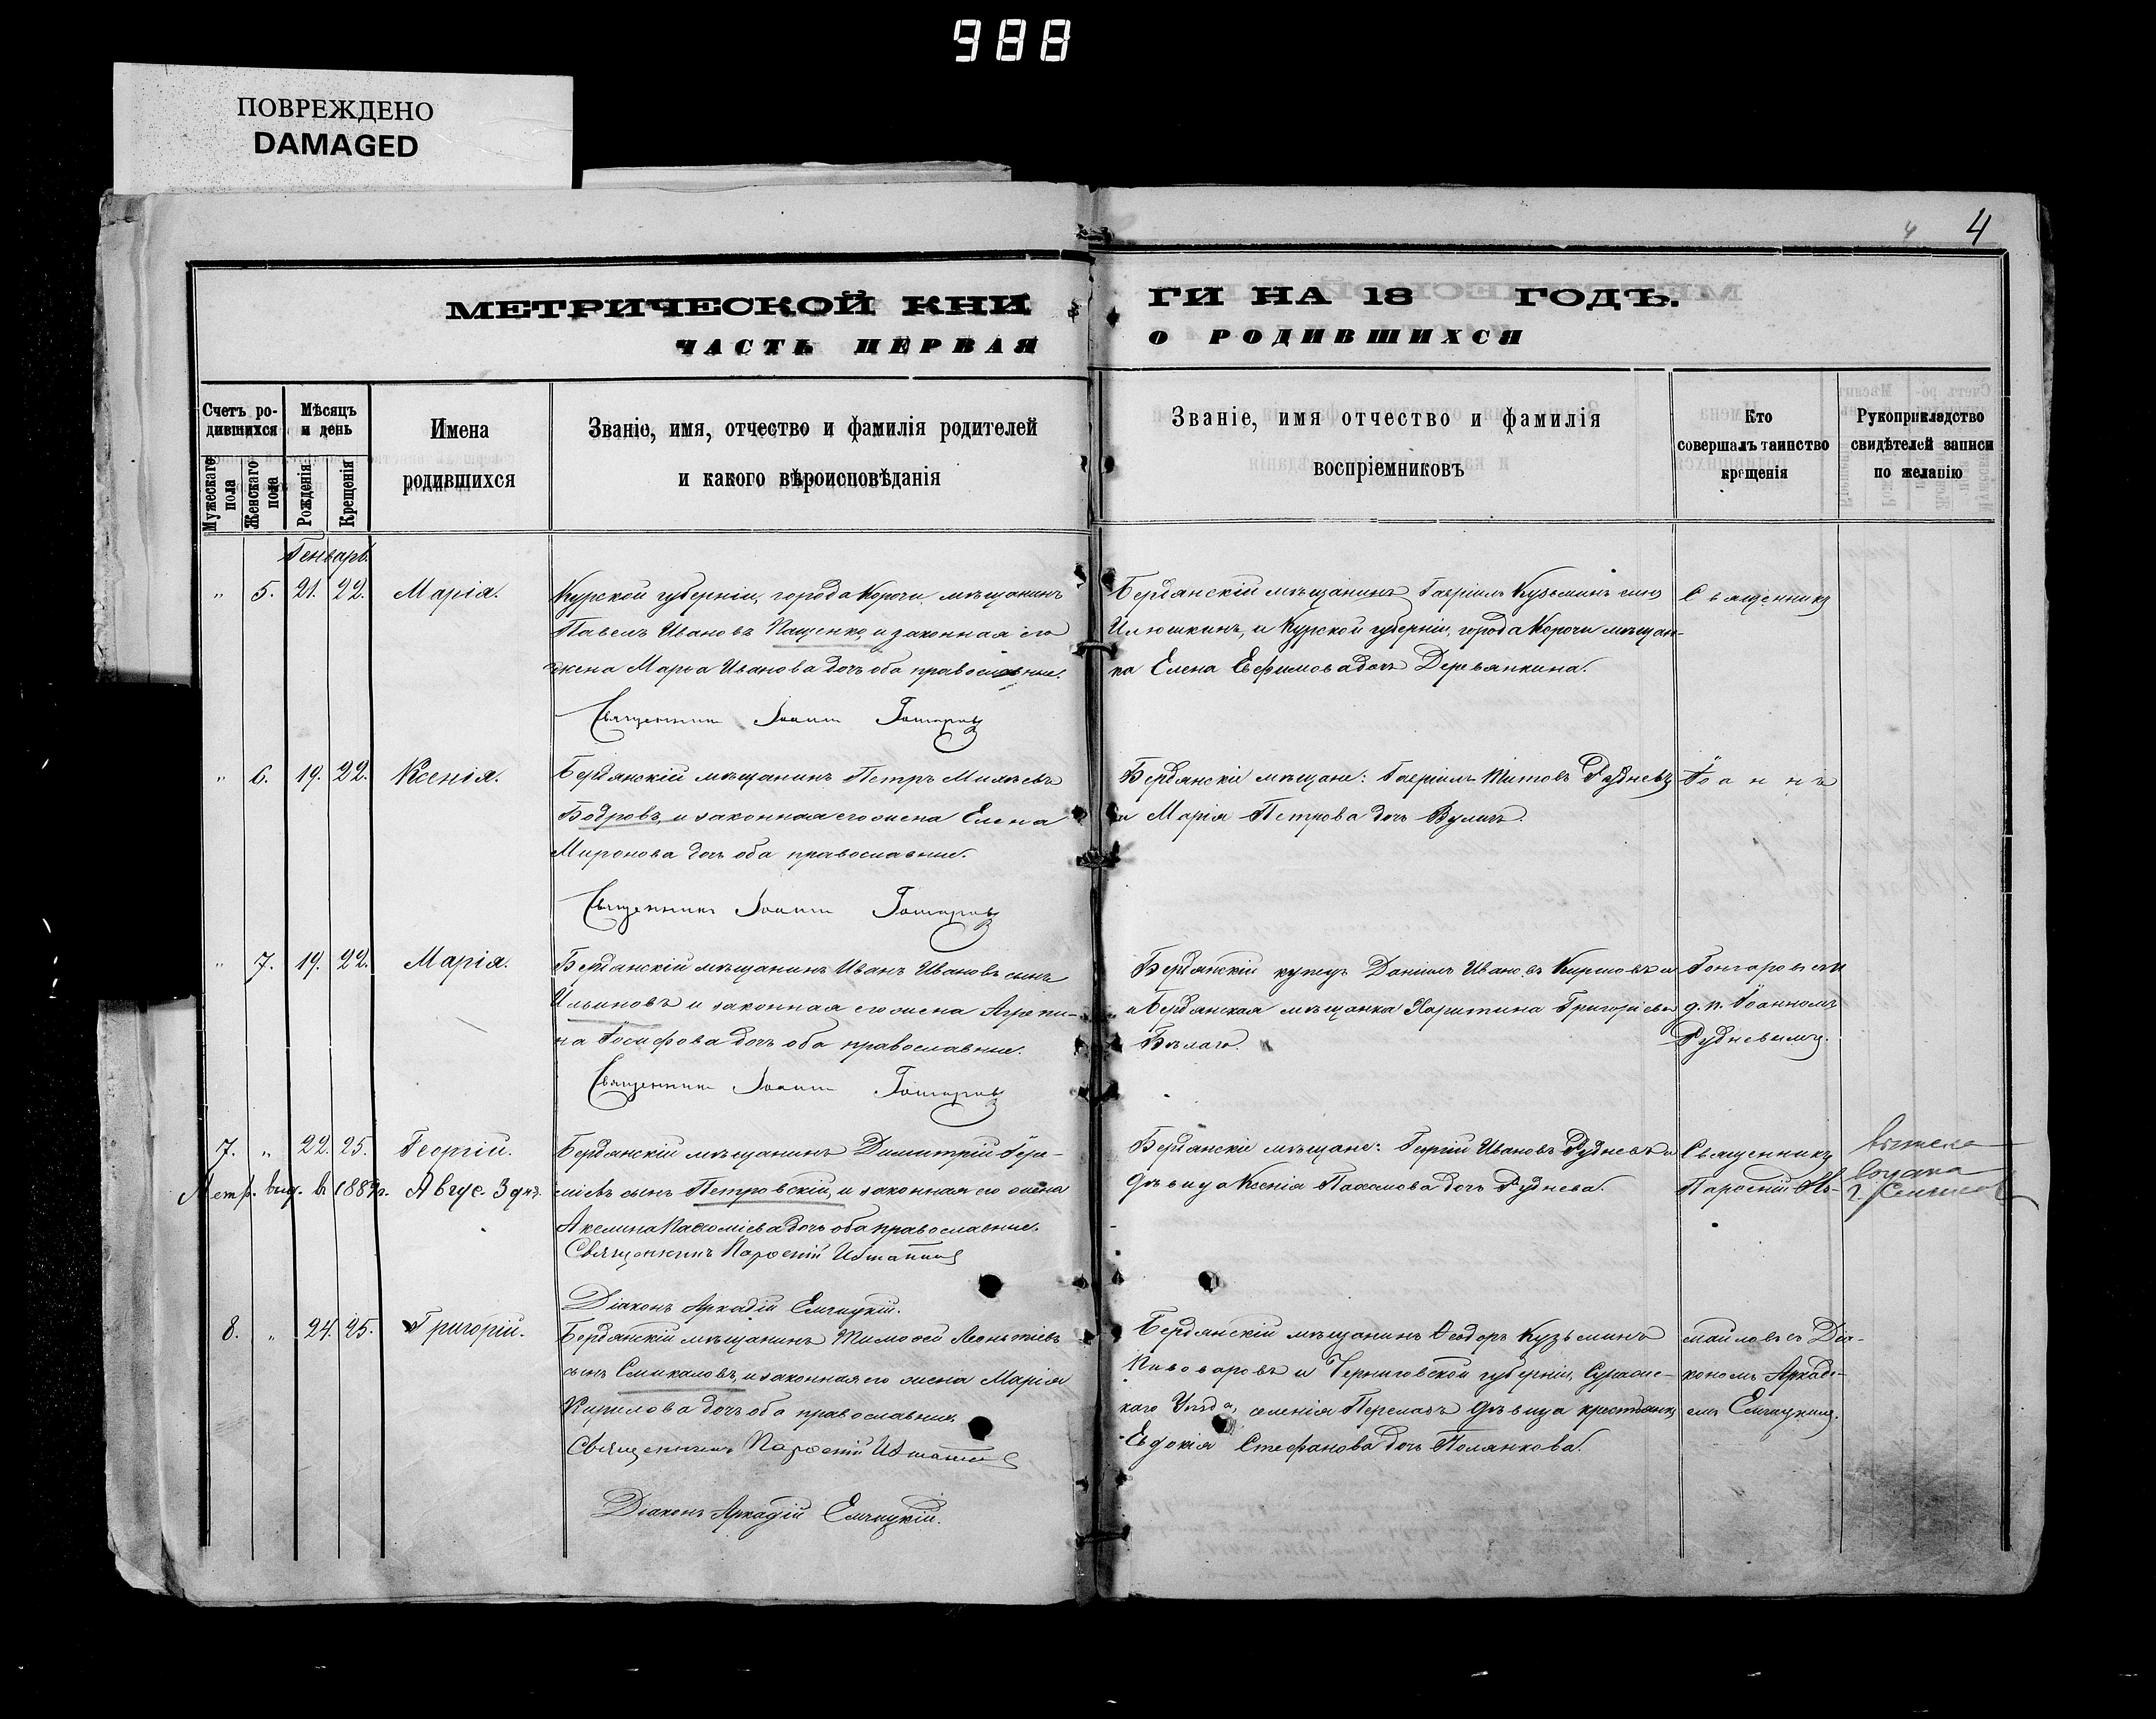 988
ПОВРЕЖДЕНО
DAMAGED
4
4
МЕТРИЧЕСКОЙ КНИ
ГИ НА 18 ГОДЪ.
ЧАСТЬ ПЕРВАЯ
О РОДИВШИХСЯ
Счетъ ро-
дившихся
Мужескаго пола
Женскаго пола
Мѣсяцъ
и день
Рожденія
Крещенія
Имена
родившихся
Званіе, имя, отчество и фамилія родителей
и какого вѣроисповѣданія
Званіе, имя отчество и фамилія
воспріемниковъ
Кто
совершалъ таинство
крещенія
Рукоприкладство
свидѣтелей записи
по желанію
Генварь.
" 5. 21. 22. Марія.
Курской губерніи, города Корочи, мѣщанинъ
Павелъ Ивановъ Пащенко, и законная его
жена Марѳа Иванова дочь оба православные.
Священникъ Іоаннъ Гончаровъ
Бердянскій мѣщанинъ Гавріилъ Кузьминъ сынъ
Илюшкинъ, и Курской губерніи, города Корочи мѣщан-
ка Елена Евфимова дочь Деревянкина.
Священникъ
" 6. 19. 22. Ксенія.
Бердянскій мѣщанинъ Петръ
Бодровъ, и законная его жена Елена
Миронова дочь оба православные.
Священникъ Іоаннъ Гончаровъ
Бердянскіе мѣщане: Гавріилъ Титовъ Рудневъ
и Марія Петрова дочь
Іоаннъ
" 7. 19. 22. Марія.
Бердянскій мѣщанинъ Иванъ Ивановъ сынъ
Ильиновъ и законная его жена Агрепи-
на Іосифова дочь оба православные.
Священникъ Іоаннъ Гончаровъ
Бердянскій купецъ Даніилъ Ивановъ
и Бердянская мѣщанка Харитина Григорьева
Бѣлаго.
Гончаровъ съ и
д. п. Іоанномъ
Рудневымъ.
7. " 22. 25. Георгій.
Метр. выд. в 1889 г. Авгус. 3 дня.
Бердянскій мѣщанинъ Димитрій
сынъ Петровскій, и законная его жена
Акелина Пахоміева дочь оба православные.
Священникъ Парѳеній Измаиловъ
Діаконъ Аркадій Емчицкій.
Бердянскіе мѣщане: Георгій Ивановъ Рудневъ и
дѣвица Ксенія Пахомова дочь Руднева.
Священникъ
Парѳеній Из-
8. " 24. 25. Григорій.
Бердянскій мѣщанинъ Тимоѳей Леонтіевъ
сынъ Смыкаловъ, и законная его жена Марія
Кирилова дочь оба православные.
Священникъ Парѳеній Измаиловъ
Діаконъ Аркадій Емчицкій.
Бердянскій мѣщанинъ Ѳеодоръ Кузьминъ
Пивоваровъ и Черниговской губерніи, Суражс-
каго Уѣзда, селенія Перелазъ дѣвица крестьянка
Евдокія Стефанова дочь Полянкова.
маиловъ съ Діа-
кономъ Аркаді-
емъ Емчицкимъ.